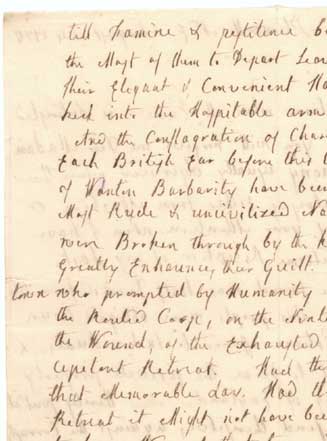 till Famine & pestilence
the Most of them to Depart
Their Elegant & Convenient
into the Hospitable arm
And the Conflagration of Char
Each British Ear before this
of Wanton Barbarity have been
Most Rude & uncivilized Na
Broken through by the
Greatly Enhance, their Guilt.
town who prompted by Humanity
the Routed Corps, on the Nint
the Wound, of the Exhausted
Retreat. Had the
that Memorable day. Had th
Retreat it Might not have been